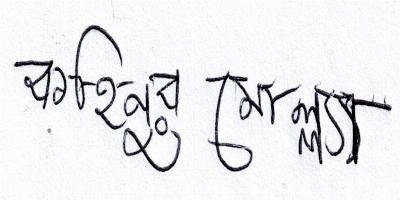 কহিনুর মোল্লা